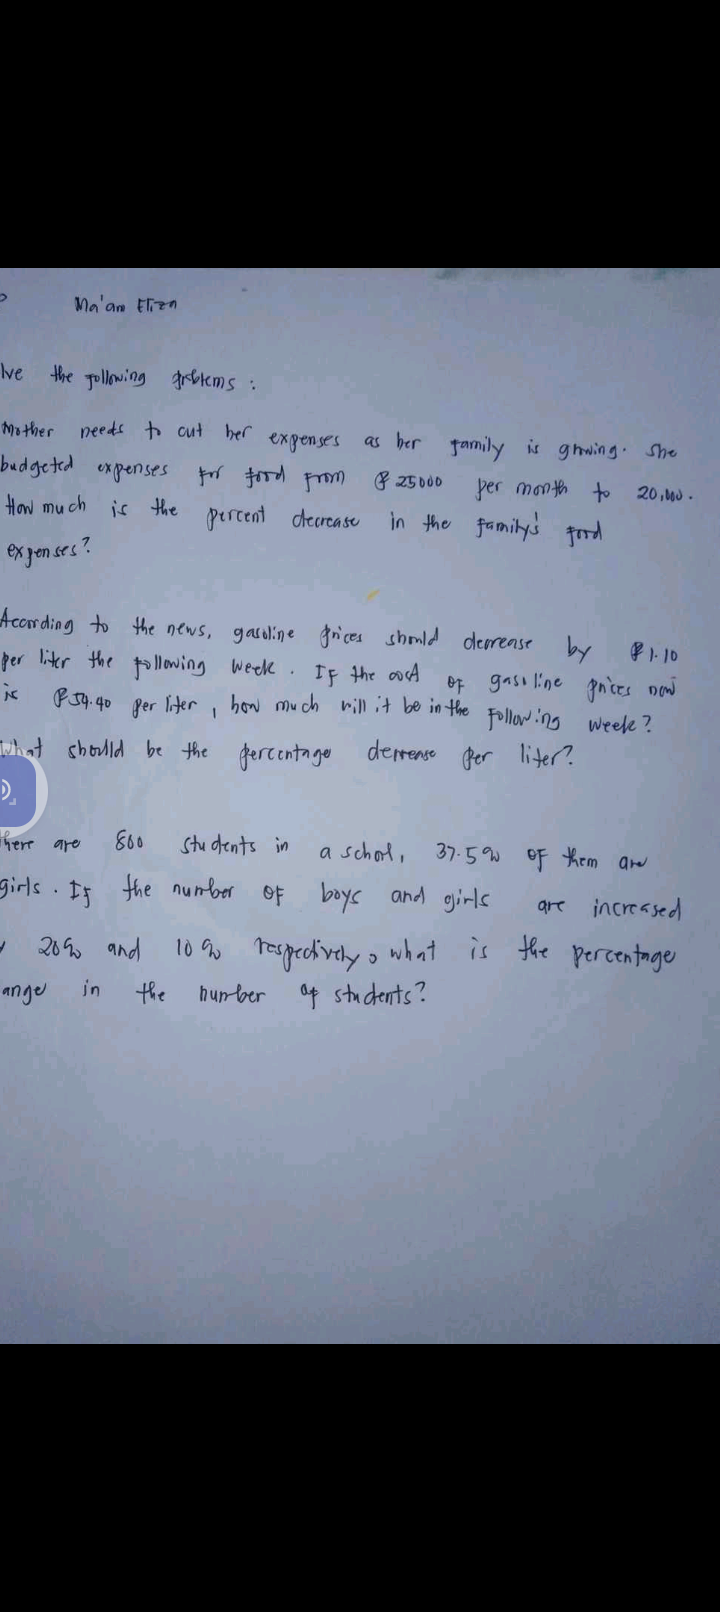 Ma'am Eliza
lve the following problems :
Mother needs to cut her expenses as her family is growing. She
budgeted expenses for food from ₱25000 per month to 20,000.
How much is the percent decrease in the family's food
expenses?
According to the news, gasoline prices should decrease by ₱1.10
per liter the following week. If the cost of gasoline prices now
is ₱54.40 per liter, how much will it be in the following week?
What should be the percentage decrease per liter?
here are 800 students in a school, 37.5% of them are
girls. If the number of boys and girls are increased
20% and 10% respectively, what is the percentage
ange in the number of students?